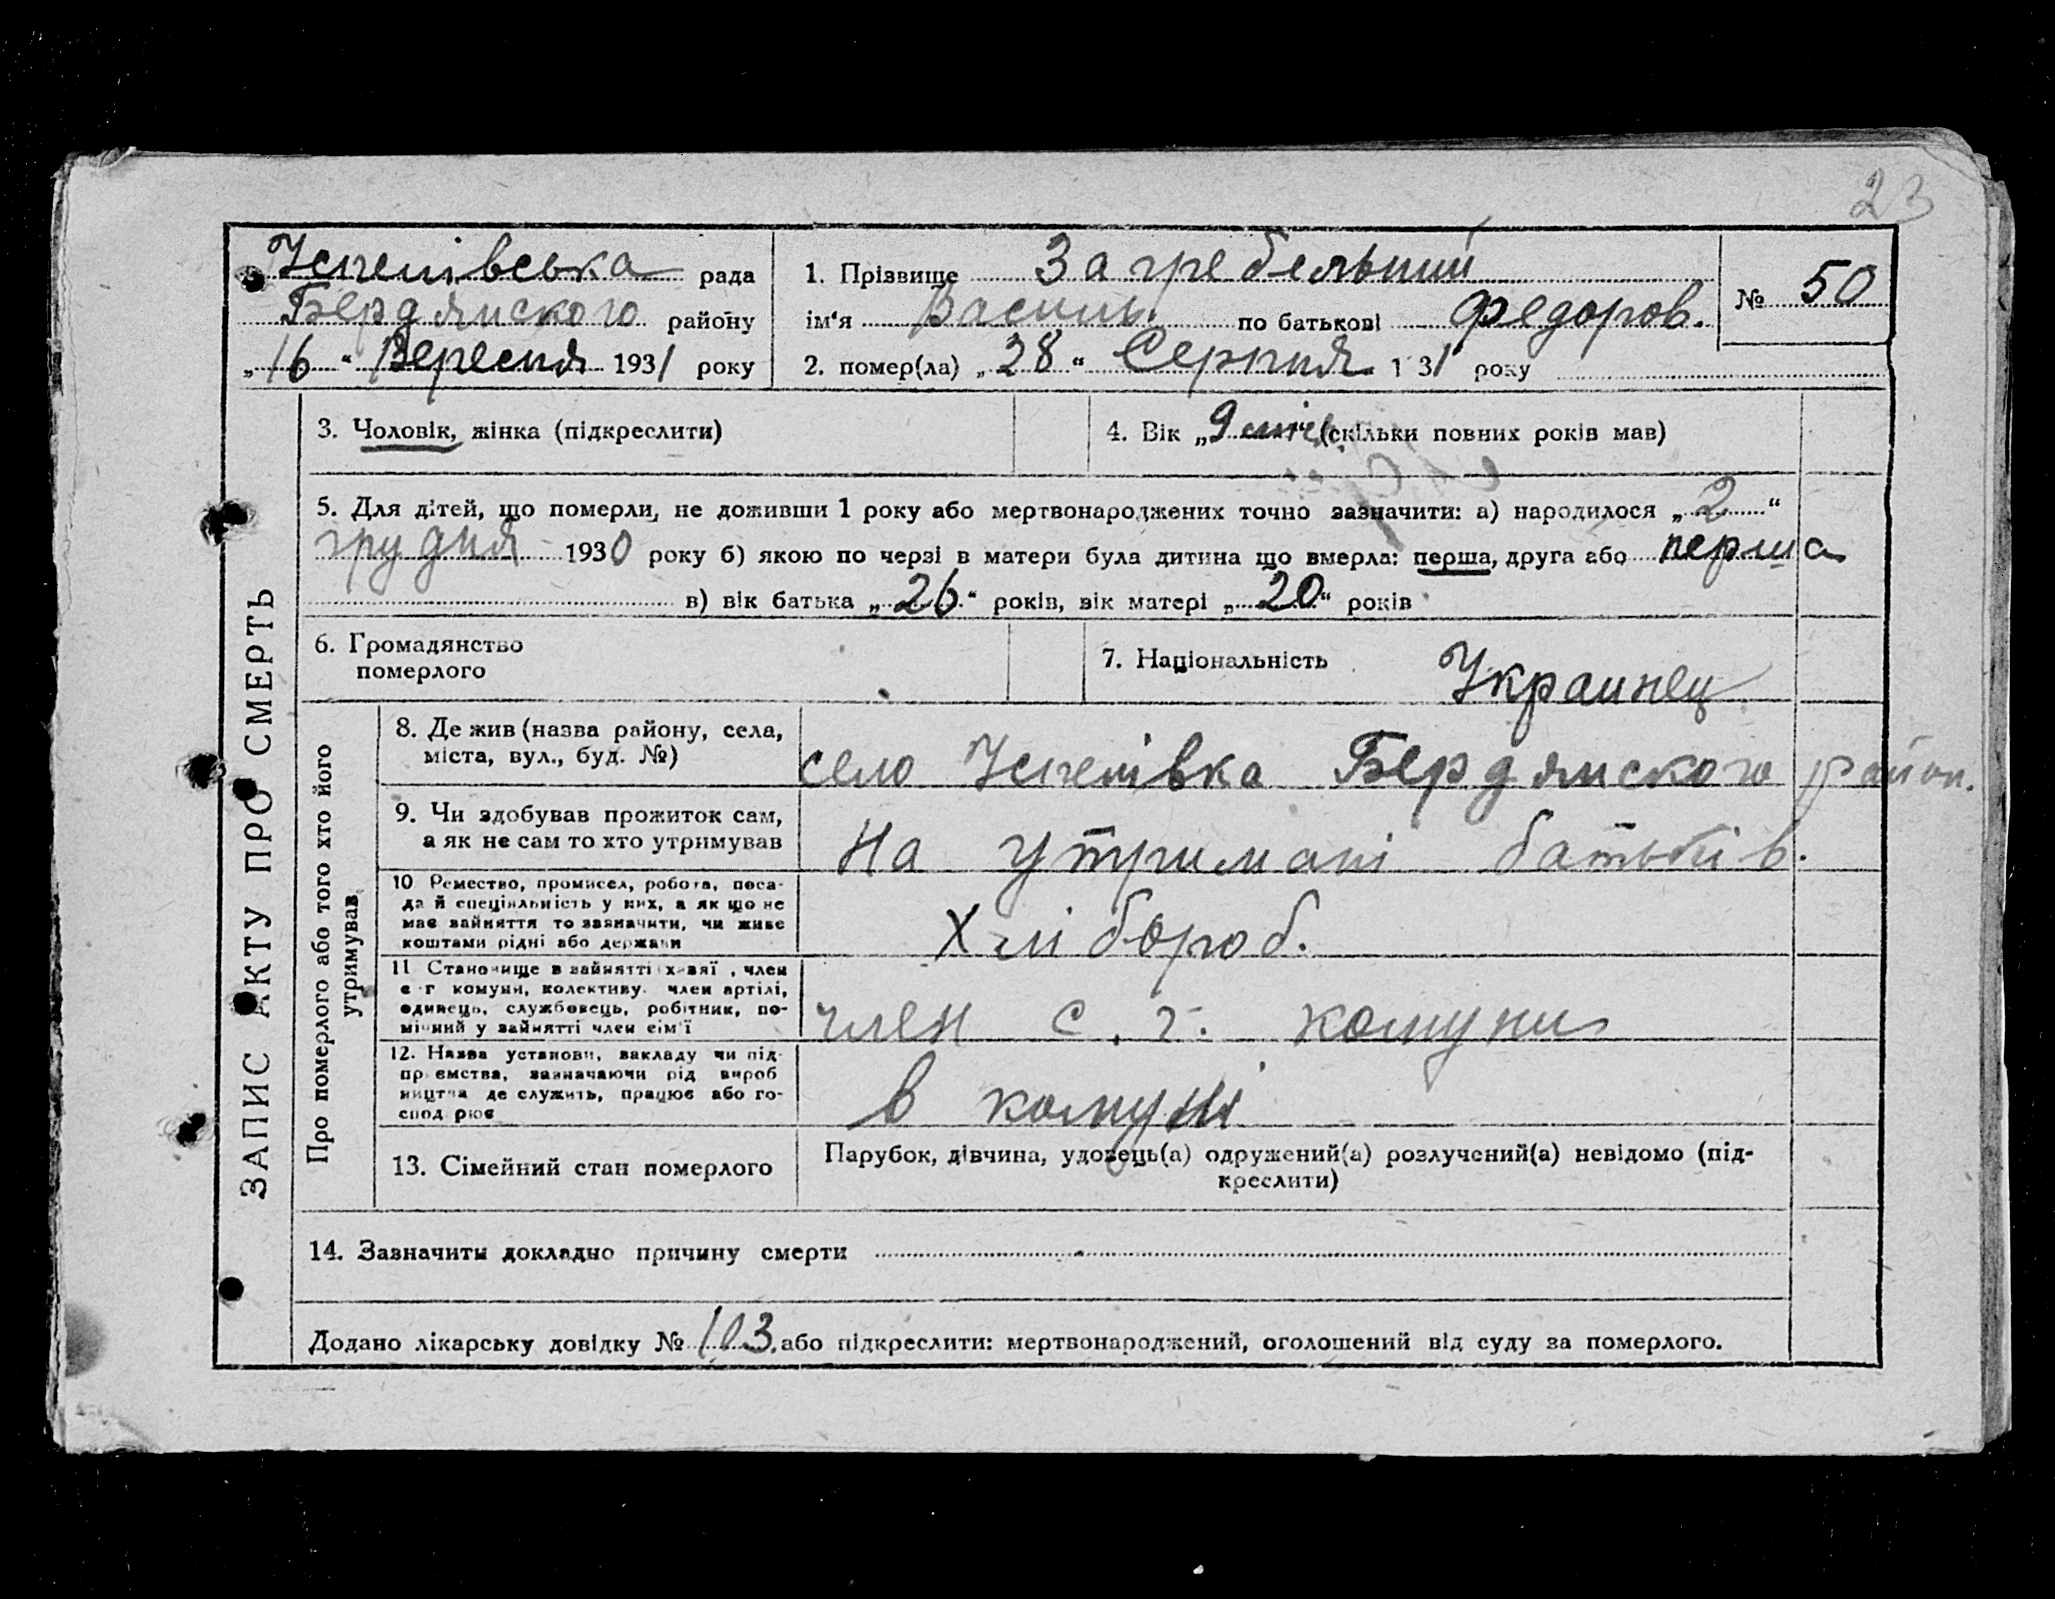 23
Успепівська рада
Бердянского району
„16“ Вересня 1931 року
1. Прізвище Загребельний
ім‘я Василь по батькові Федоров.
2. помер(ла) „28“ Серпня 1931 року
№ 50
3. Чоловік, жінка (підкреслити)
4. Вік „9 міс.“ (скільки повних років мав)
5. Для дітей, що померли, не доживши 1 року або мертвонароджених точно зазначити: а) народилося „2“
грудня 1930 року б) якою по черзі в матери була дитина що вмерла: перша, друга або перша
в) вік батька „26“ років, вік матері „20“ років
6. Громадянство
померлого
7. Національність Украинец
ЗАПИС АКТУ ПРО СМЕРТЬ
Про померлого або того хто його
утримував
8. Де жив (назва району, села,
міста, вул., буд. №)
село Успепівка Бердянского район.
9. Чи здобував прожиток сам,
а як не сам то хто утримував
На утримані батьків.
10 Ремество, промисел, робота, поса-
да й спеціяльність у них, а як що не
має зайняття то зазначити, чи живе
коштами рідні або держави
Хлібороб.
11 Становище в зайнятті хазяї , член
с г комуни, колективу. член артілі,
одинець, службовець, робітник, по-
мічний у зайнятті член сім'ї
член с. г. комуни
12. Назва установи, закладу чи під-
приємства, зазначаючи рід вироб
ництва де служить, працює або го-
спод рює
в комуні
13. Сімейний стан померлого
Парубок, дівчина, удовець(а) одружений(а) розлучений(а) невідомо (під-
креслити)
14. Зазначити докладно причину смерти
Додано лікарську довідку № 103. або підкреслити: мертвонароджений, оголошений від суду за померлого.